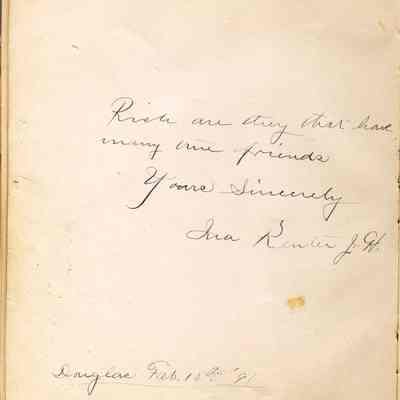 Rich are they that have
many true friends
Yours Sincerely
Ina Renter J.H.
Douglas Feb. 10th '91